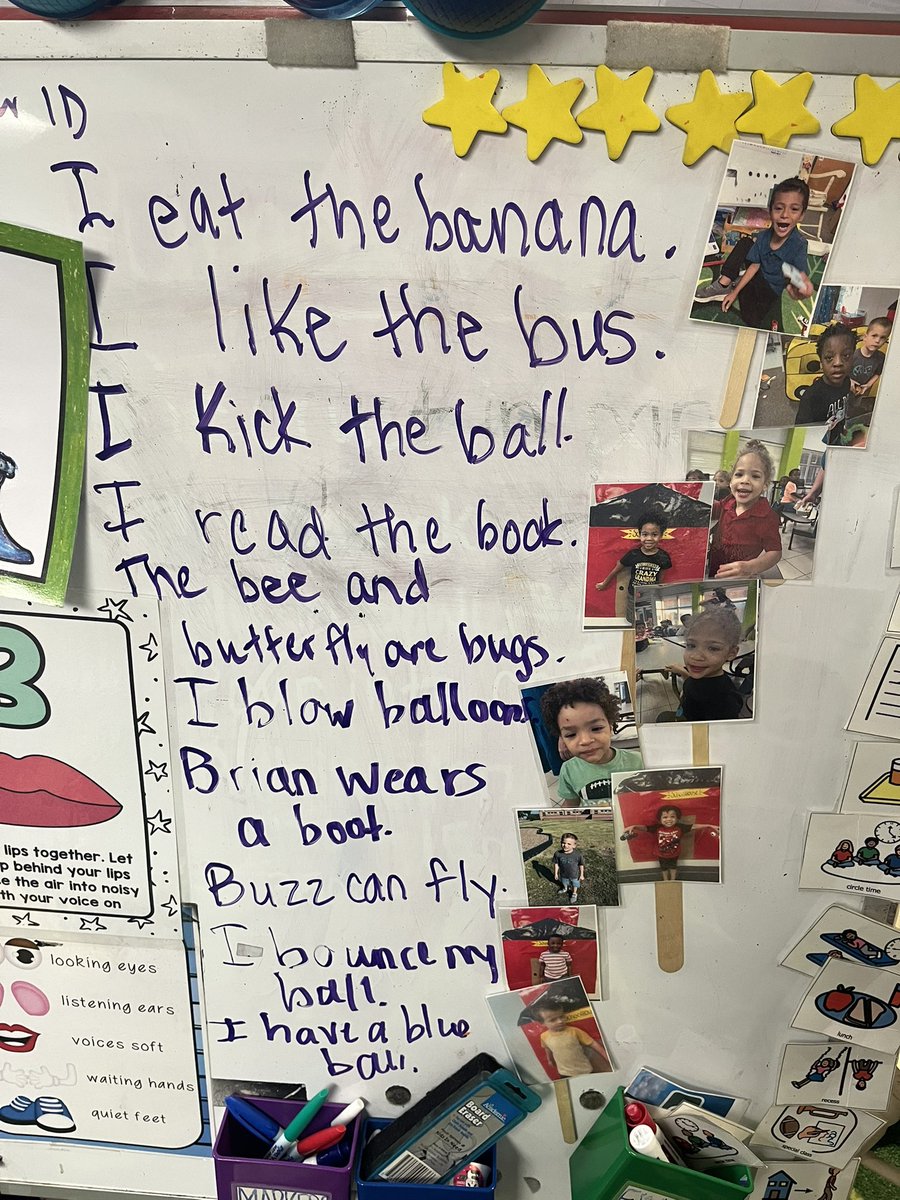 ID
I eat the banana.
I like the bus.
I kick the ball.
I read the book.
The bee and
butterfly are bugs.
I blow balloons
Brian wears
a boot.
Buzz can fly.
I bounce my
ball.
I have a blue
ball.
B
lips together. Let
behind your lips
the air into noisy
with your voice on
looking eyes
listening ears
voices soft
waiting hands
quiet feet
circle time
lunch
recess
special class
Board
Eraser
MARKERS
CRAZY